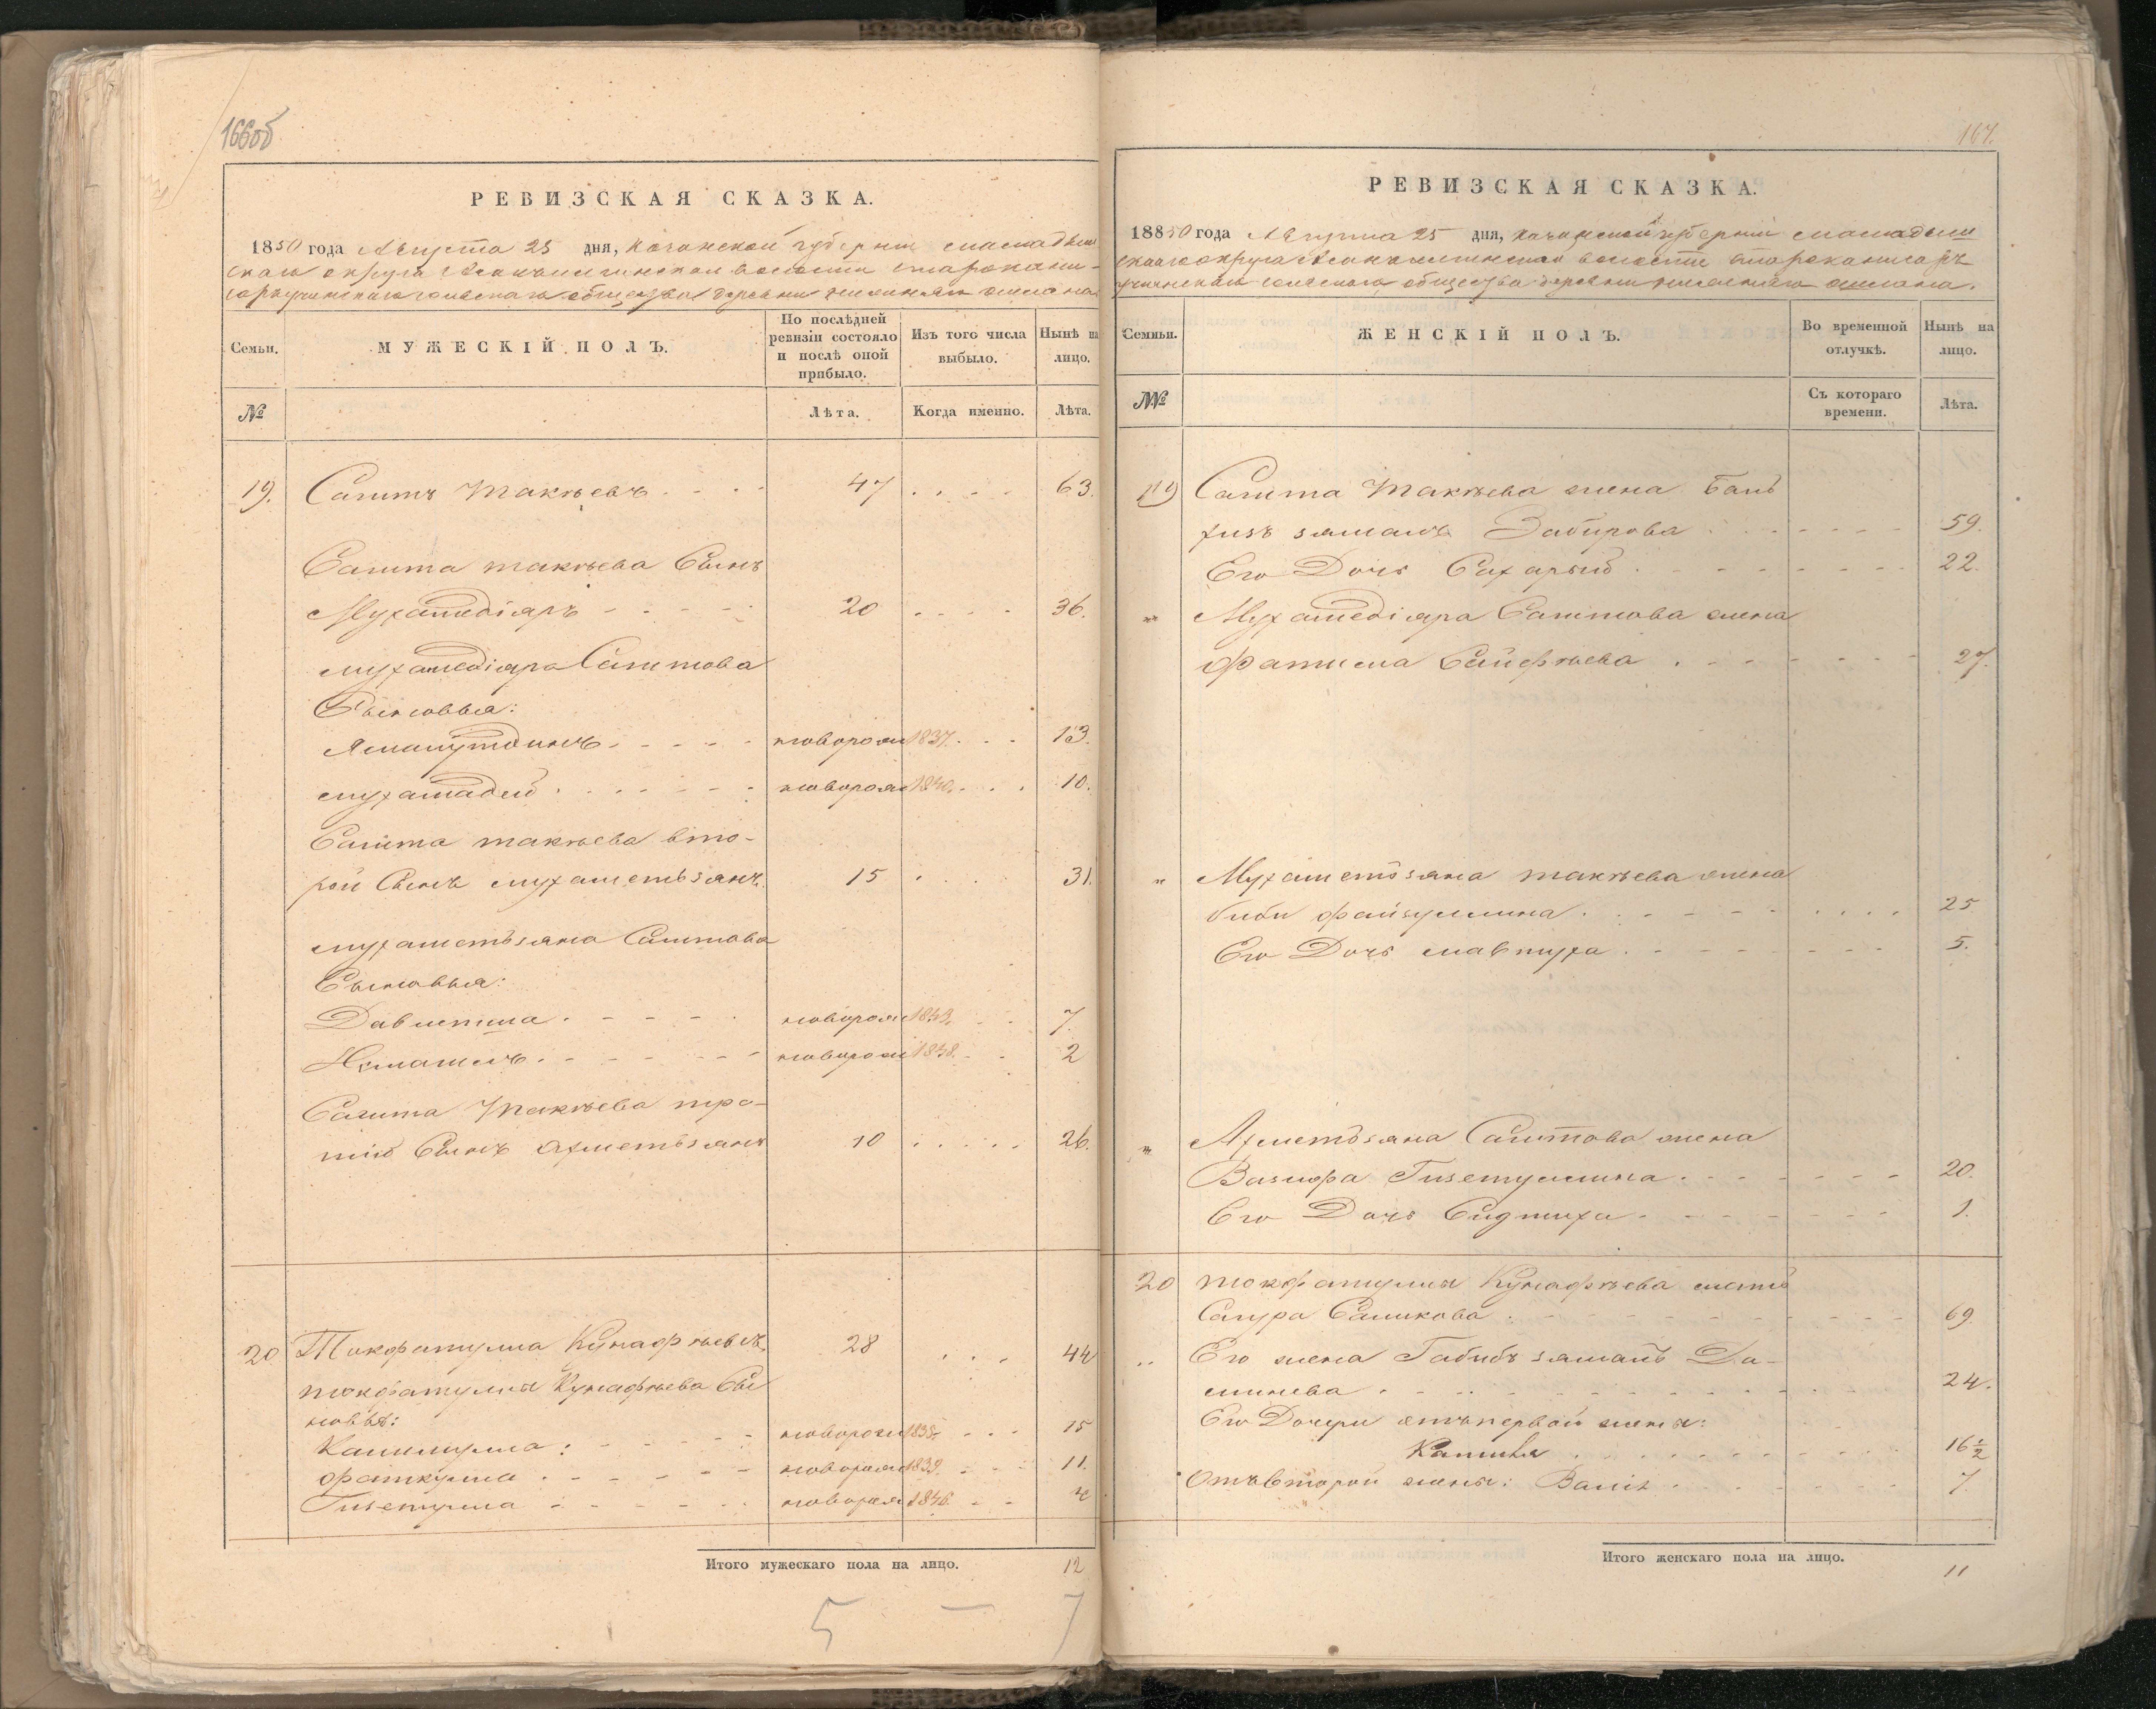 166об
РЕВИЗСКАЯ СКАЗКА.
1850 года Августа 25 дня, Казанской губерніи мамадыш
скаго округа волости
сельскаго общества деревни нижняго ошлана
Семьи.
МУЖЕСКІЙ ПОЛЪ.
По послѣдней ревизіи состояло и послѣ оной прибыло.
Изъ того числа выбыло.
Нынѣ на лицо.
№
Лѣта.
Когда именно.
Лѣта.
19. Сагитъ Такѣевъ 47 63.
Сагита такѣева Сынъ
Мухамедіяръ 20 36.
мухамедіяра Сагитова
Сыновья:
Ямалутдинъ новорож 1837. 13.
мухамадей новорож 1840. 10.
Сагита такѣева вто-
рой Сынъ мухаметьзянъ 15 31.
мухаметьзяна Сагитова
Сыновья:
Давлетша новорож 1843. 7.
новорож 1848. 2
Сагита Такѣева тре-
тій Сынъ ахметьзянъ 10 26.
20. Токфатулла Кунафѣевъ 28 44
токфатуллы Кунафѣева Сы
новья:
Калимулла: новорож 1835. 15
фаткулла новорож 1839. 11.
Гизетулла новорож 1846. 4
Итого мужескаго пола на лицо. 12
5 — 7
167.
РЕВИЗСКАЯ СКАЗКА.
18850 года Августа 25 дня, Казанской губерніи мамадыш
скаго округа волости
сельскаго общества деревни нижняго ошлана.
Семьи.
ЖЕНСКІЙ ПОЛЪ.
Во временной отлучкѣ.
Нынѣ на лицо.
№№
Съ котораго времени.
Лѣта.
19 Сагита Такѣева жена Баньд
физъ замалъ Забирова 59.
Его Дочь 22.
" Мухамедіяра Сагитова жена
фатима Сайфѣева 27.
" Мухаметьзяна такѣева жена
биби файзуллина 25
Его Дочь мавтуха 5.
" Ахметьзяна Сагитова жена
Вазифа Гизетуллина 20.
Его Дочь 1.
20 токфатуллы Кунафѣева мать
Сагура Саликова 69
" Его жена Габибъ замалъ Да-
минева 24.
Его Дочери отъ первой жены:
16 1/2
Отъ второй жены: 7
Итого женскаго пола на лицо.
11